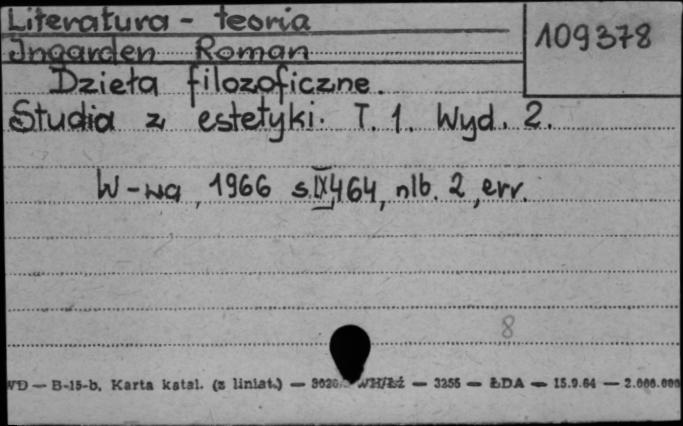 Literatura - teoria
109378
Ingarden Roman
Dzieła filozoficzne.
Studia z estetyki. T. 1. Wyd. 2.
W-wa, 1966 s. IX, 464, nlb. 2, err.
8
WD — B-15-b. Karta katal. (z liniat.) — WH/Łź — 3255 — ŁDA — 15.9.64 — 2.000.000